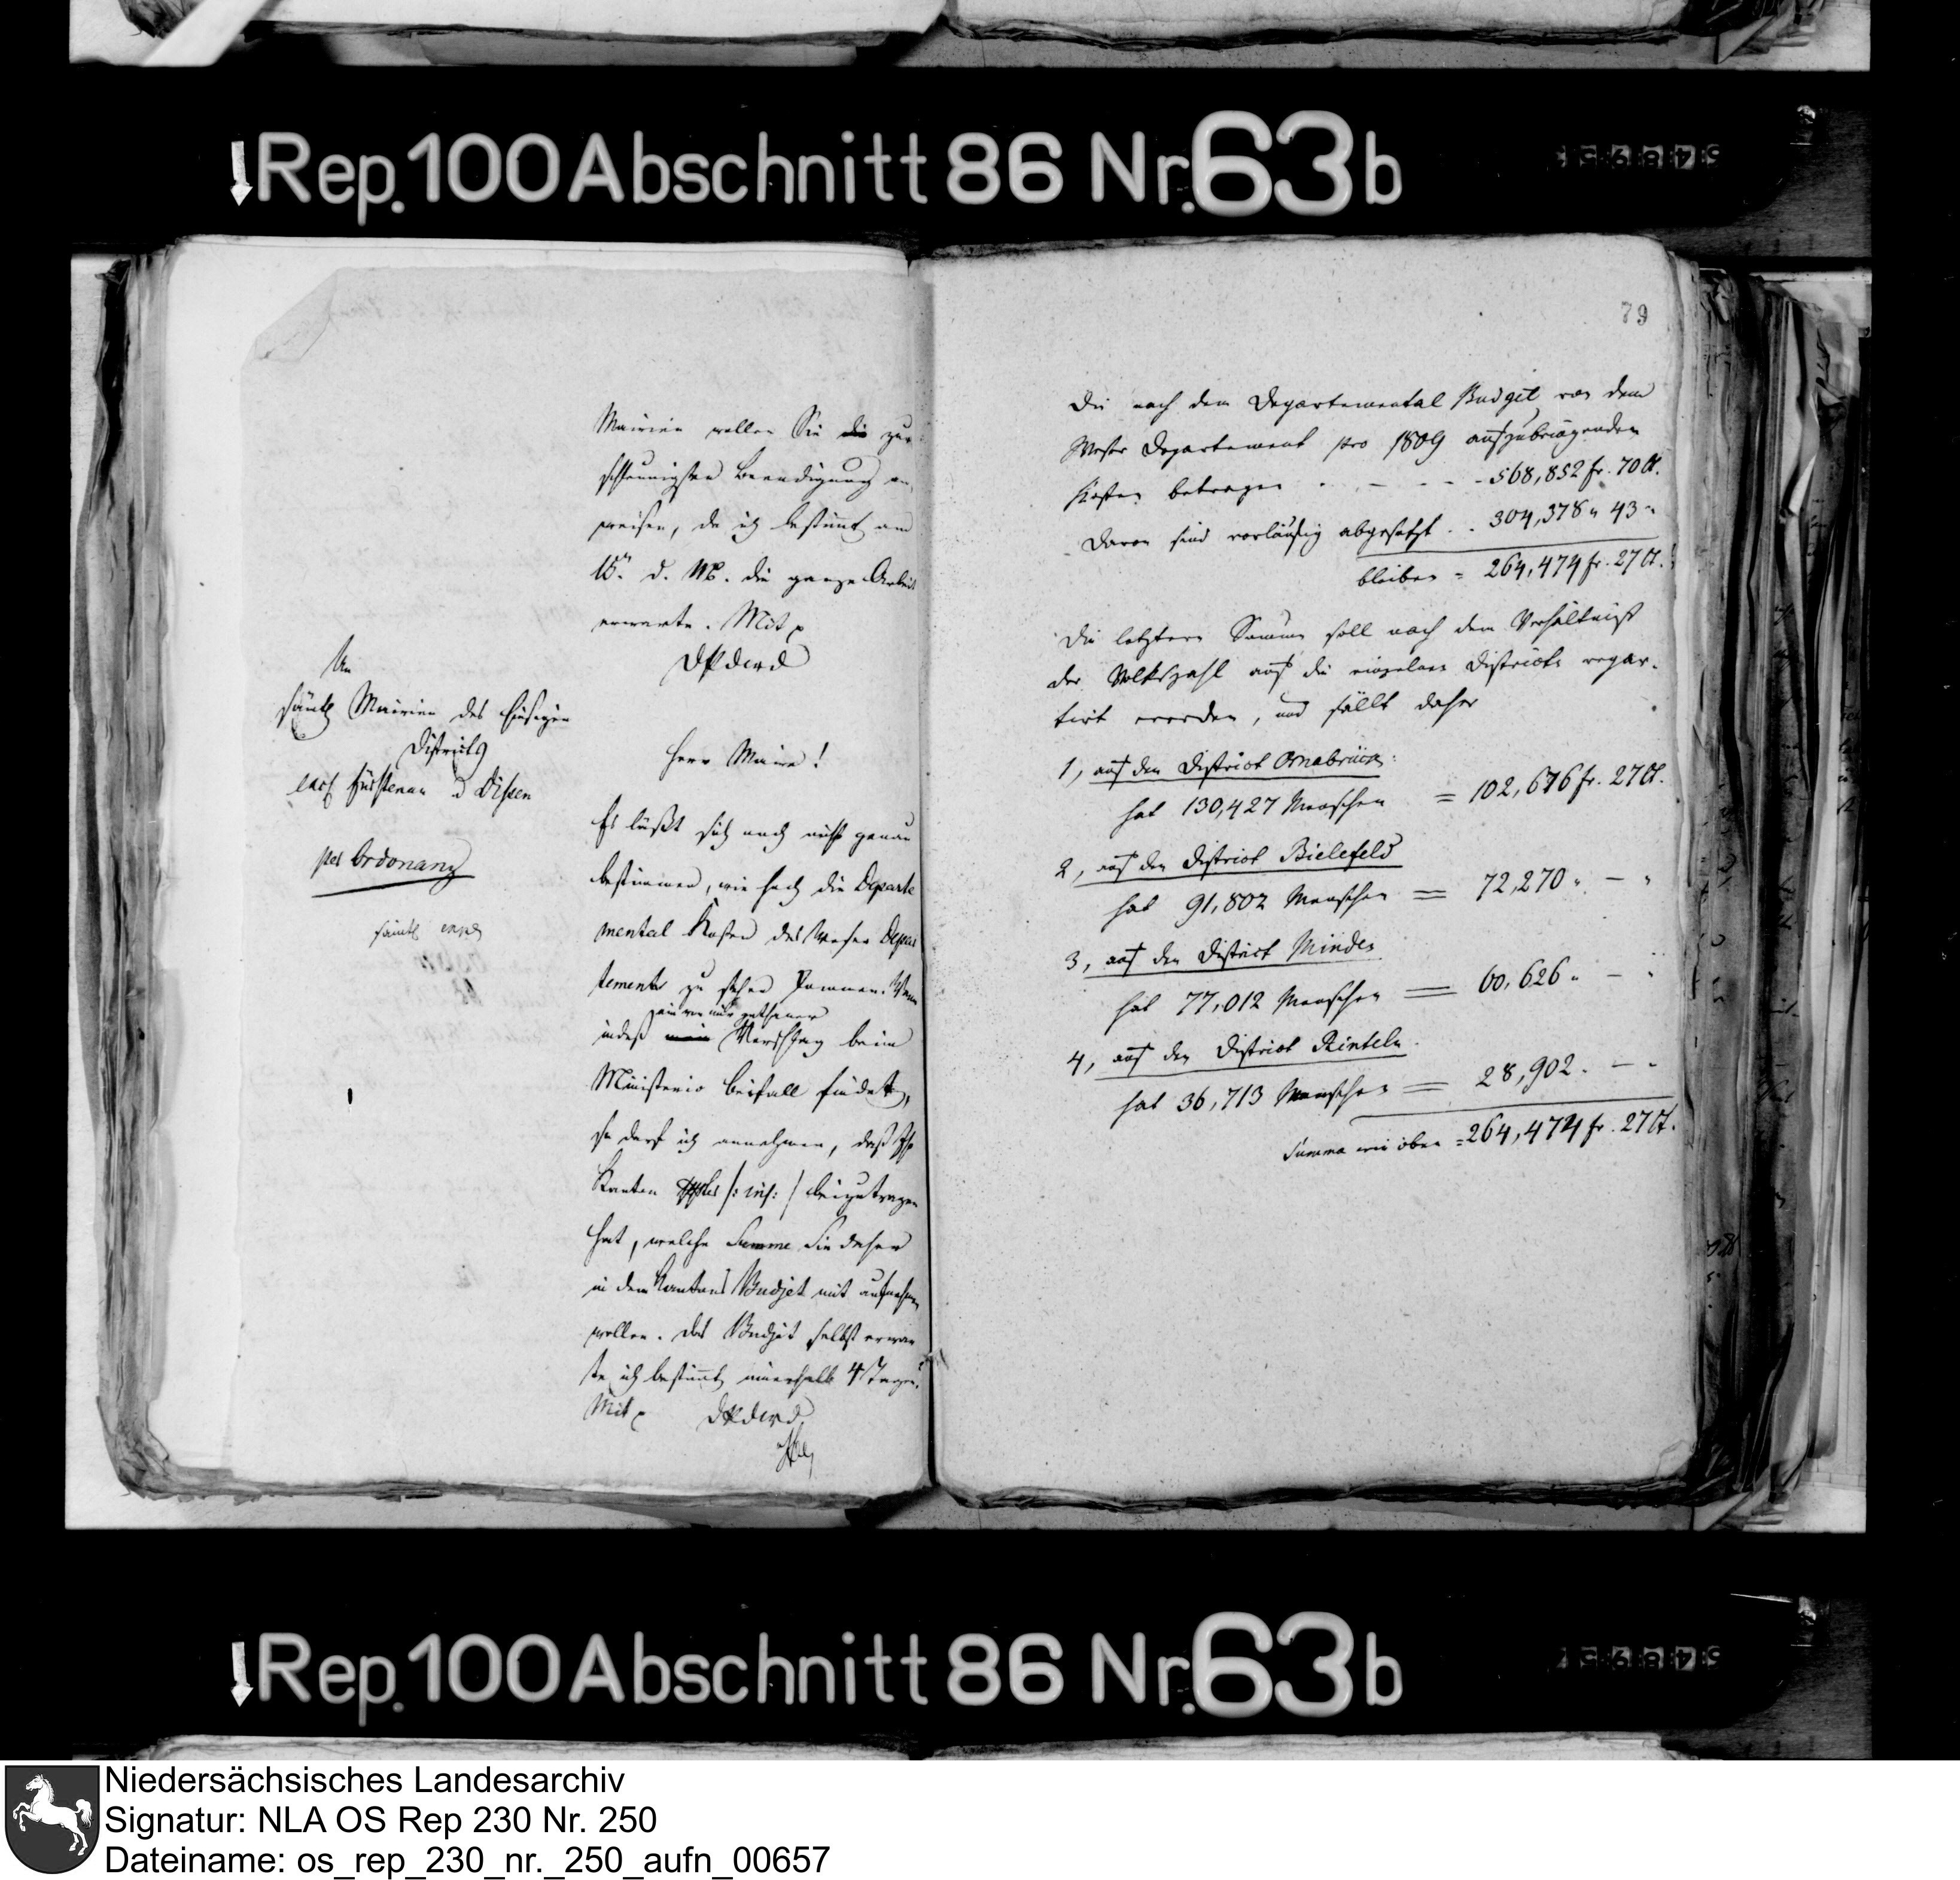 Rep. 100 Abschnitt 86 Nr. 63b
Mairien wollen Sie die zur
schleunigsten Beendigung an
weisen, da ich bestimt am
15n. d. M. die ganze Arbeit
erwarte. Mit
An
sämtl Mairien des hiesigen
Districts
excl Fürstenau u Dissen
per Ordonanz
sämtl
Herr Maire!
Es läßt sich noch nicht genau
bestimmen, wie hoch die Departe
mental Kosten des Weser Depar
tements zu stehen kommen. Wenn
ein von mir gethaner
indeß mein Vorschlag beim
Ministerio Beifall findet,
so darf ich annehmen, daß Ihr
Kanton /: ins: / beizutragen
hat, welche Summe Sie daher
in dem Kantons Budjet mit aufnehmen
wollen. Das Budjet selbst erwar
te ich bestimt innerhalb 4 Tagen.
Mit
79
Die nach dem Departemental Budget von dem
Weser Departement pro 1809 aufzubringenden
Kosten betragen . . - - - - 568,852 fr. 70 Ct.
Davon sind vorläufig abgesetzt . . 304,378 " 43 "
bleiben = 264,474 fr. 27 Ct.
Die letztere Summe soll nach dem Verhältniß
der Volkszahl auf die einzelnen Districte repar-
tirt werden, und fällt daher
1, auf den District Osnabrück
hat 130,427 Menschen = 102,676 fr. 27 Ct.
2, auf den District Bielefeld
hat 91,802 Menschen = 72,270 " — "
3, auf den District Minden
hat 77,012 Menschen = 60,626 " — "
4, auf den District Rinteln
hat 36,713 Menschen = 28,902 . — "
Summa wie oben = 264,474 fr. 27 Ct.
Rep. 100 Abschnitt 86 Nr. 63b
Niedersächsisches Landesarchiv
Signatur: NLA OS Rep 230 Nr. 250
Dateiname: os_rep_230_nr._250_aufn_00657